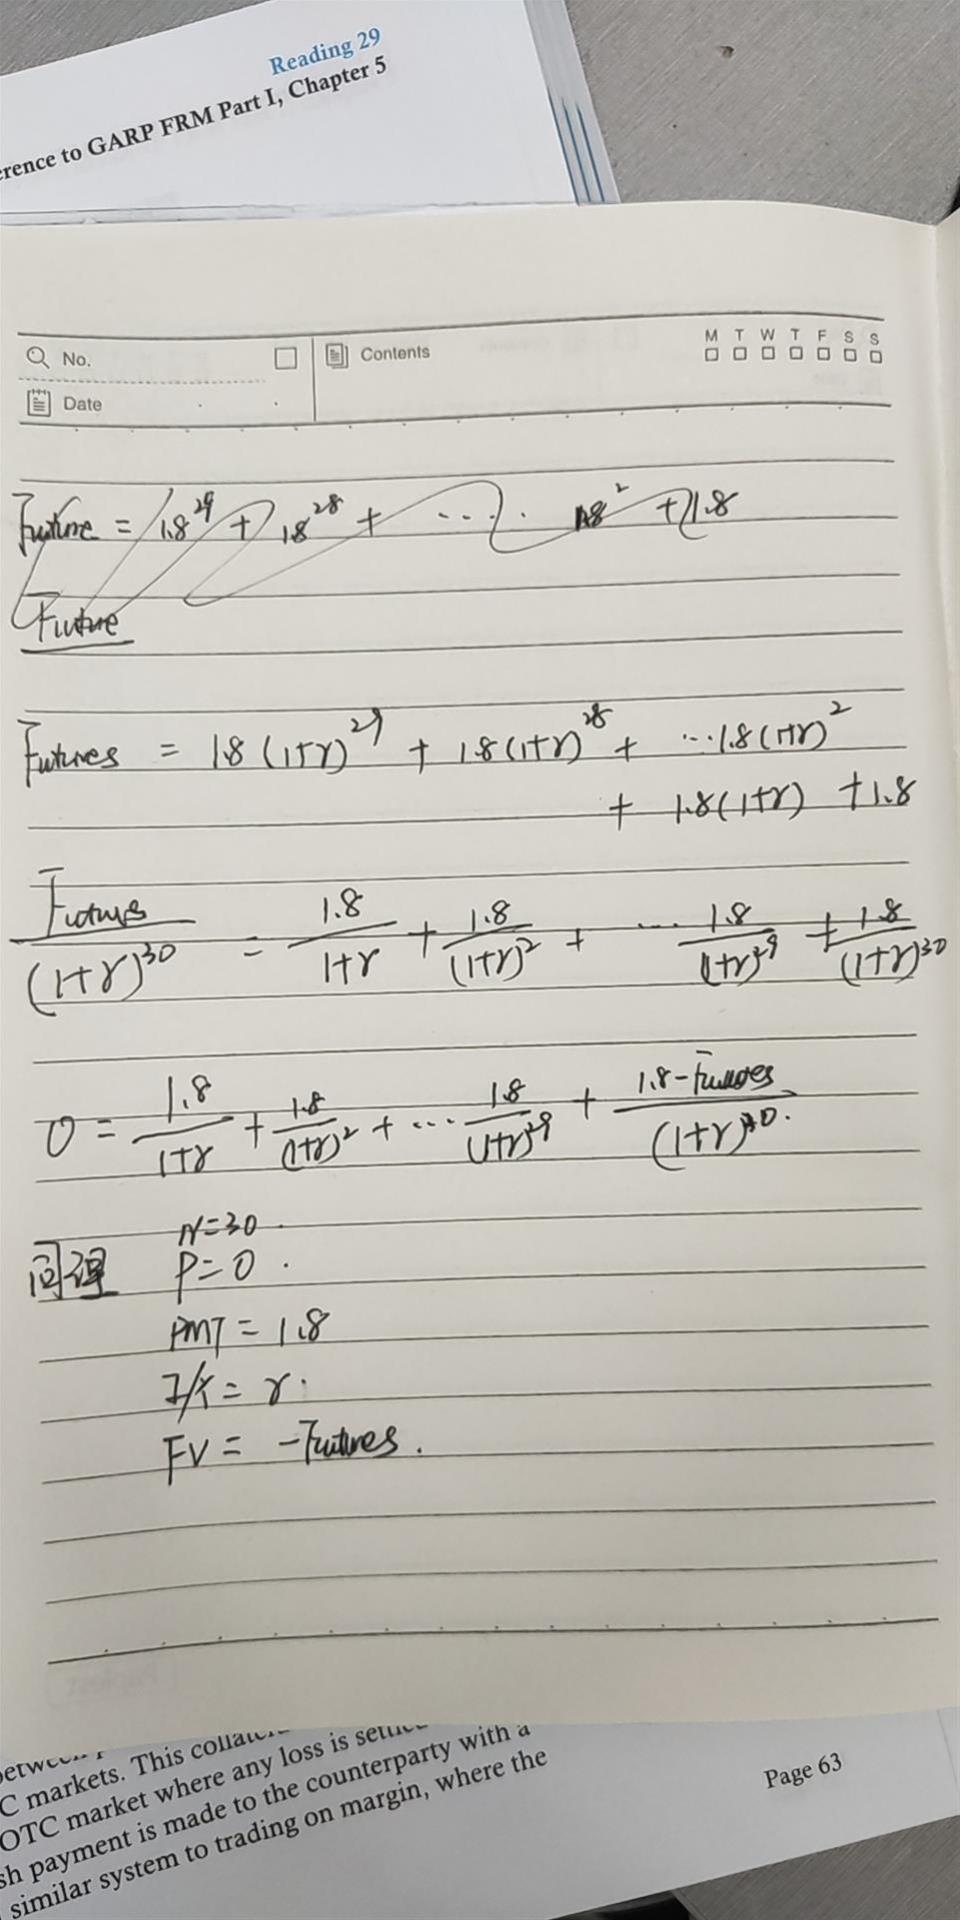 Reading 29
erence to GARP FRM Part I, Chapter 5
No.
Contents
M T W T F S S
Date
Future = 1.8^29 + 1.8^28 + ... 1.8^2 + 1.8
Future
Futures = 1.8(1+r)^29 + 1.8(1+r)^28 + ...1.8(1+r)^2
+ 1.8(1+r) + 1.8
Futures/(1+r)^30 = 1.8/1+r + 1.8/(1+r)^2 + ... 1.8/(1+r)^29 + 1.8/(1+r)^30
0 = 1.8/1+r + 1.8/(1+r)^2 + ... 1.8/(1+r)^29 + 1.8-Futures/(1+r)^30.
N=30.
同理 P=0.
PMT = 1.8
I/Y = r.
FV = -Futures.
C markets. This
OTC market where any loss is
sh payment is made to the counterparty with a
similar system to trading on margin, where the
Page 63